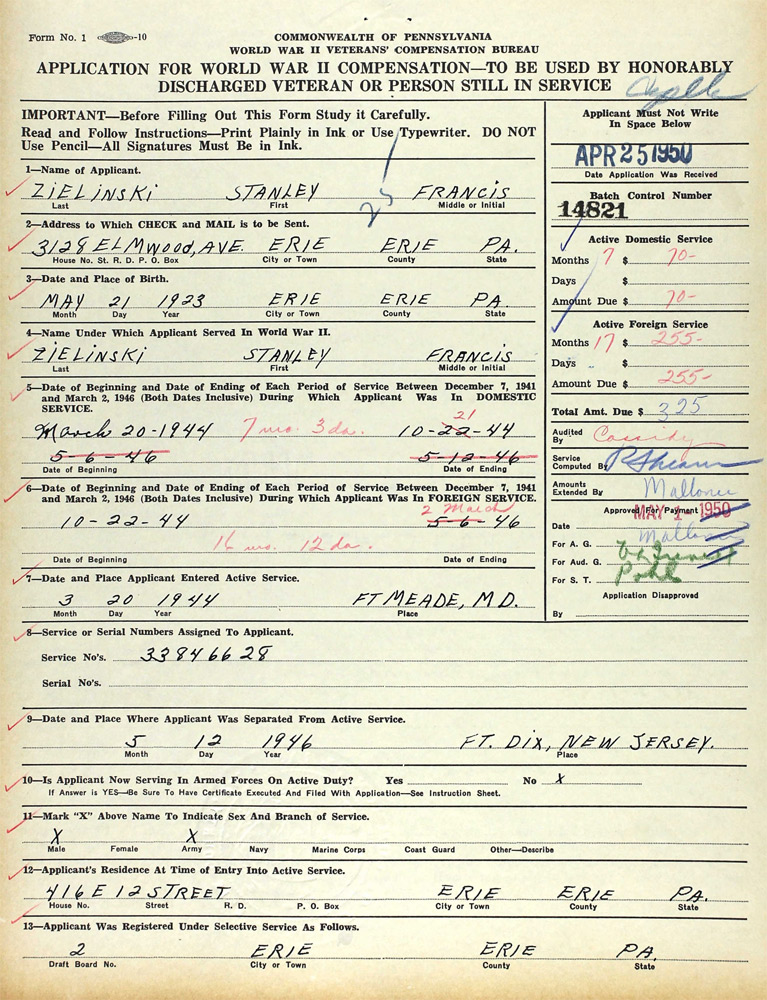 Form No. 1 -10
COMMONWEALTH OF PENNSYLVANIA
WORLD WAR II VETERANS' COMPENSATION BUREAU
APPLICATION FOR WORLD WAR II COMPENSATION—TO BE USED BY HONORABLY
DISCHARGED VETERAN OR PERSON STILL IN SERVICE
IMPORTANT—Before Filling Out This Form Study it Carefully.
Read and Follow Instructions—Print Plainly in Ink or Use Typewriter. DO NOT
Use Pencil—All Signatures Must Be in Ink.
1—Name of Applicant.
ZIELINSKI STANLEY FRANCIS
Last First Middle or Initial
2—Address to Which CHECK and MAIL is to be Sent.
3128 ELMWOOD, AVE. ERIE ERIE PA.
House No. St. R. D. P. O. Box City or Town County State
3—Date and Place of Birth.
MAY 21 1923 ERIE ERIE PA.
Month Day Year City or Town County State
4—Name Under Which Applicant Served In World War II.
ZIELINSKI STANLEY FRANCIS
Last First Middle or Initial
5—Date of Beginning and Date of Ending of Each Period of Service Between December 7, 1941
and March 2, 1946 (Both Dates Inclusive) During Which Applicant Was In DOMESTIC
SERVICE.
21
March 20-1944 7 mo. 3 da. 10-22-44
5-6-46 5-12-46
Date of Beginning Date of Ending
6—Date of Beginning and Date of Ending of Each Period of Service Between December 7, 1941
and March 2, 1946 (Both Dates Inclusive) During Which Applicant Was In FOREIGN SERVICE.
2 March
10-22-44 5-6-46
16 mo. 12 da.
Date of Beginning Date of Ending
7—Date and Place Applicant Entered Active Service.
3 20 1944 FT MEADE, MD.
Month Day Year Place
8—Service or Serial Numbers Assigned To Applicant.
Service No's. 33846628
Serial No's.
9—Date and Place Where Applicant Was Separated From Active Service.
5 12 1946 FT. DIX, NEW JERSEY.
Month Day Year Place
10—Is Applicant Now Serving In Armed Forces On Active Duty? Yes No X
If Answer is YES—Be Sure To Have Certificate Executed And Filed With Application—See Instruction Sheet.
11—Mark "X" Above Name To Indicate Sex And Branch of Service.
X X
Male Female Army Navy Marine Corps Coast Guard Other—Describe
12—Applicant's Residence At Time of Entry Into Active Service.
416 E 12 STREET ERIE ERIE PA.
House No. Street R. D. P. O. Box City or Town County State
13—Applicant Was Registered Under Selective Service As Follows.
2 ERIE ERIE PA.
Draft Board No. City or Town County State
Applicant Must Not Write
In Space Below
APR 25 1950
Date Application Was Received
Batch Control Number
14821
Active Domestic Service
Months 7 $ 70-
Days $
Amount Due $ 70-
Active Foreign Service
Months 17 $ 255-
Days $
Amount Due $ 255-
Total Amt. Due $ 325
Audited By Cassidy
Service Computed By
Amounts Extended By Mallone
Approved For Payment
MAY 1- 1950
Date
For A. G.
For Aud. G.
For S. T.
Application Disapproved
By